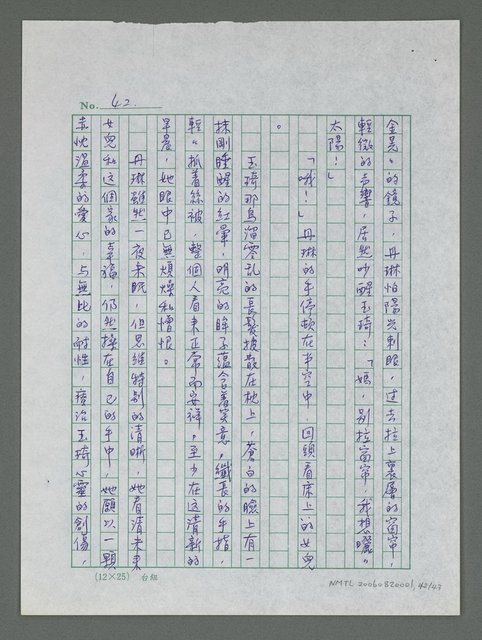 No. 42.
金晃晃的鏡子，丹琳怕陽光刺眼，过去拉上裏層的窗帘，
輕微的声響，居然吵醒玉琦：「媽，别拉窗帘，我想曬曬
太陽！」
「哦！」丹琳的手停頓在半空中，回頭看床上的女兒
。
玉琦那烏溜零乱的長髮披散在枕上，蒼白的臉上有一
抹剛睡醒的紅暈，明亮的眸子蕴含着笑意，纖長的手指，
輕輕抓着絲被，整個人看来正常而安祥。至少在这清新的
早晨，她眼中已無煩燥和憎恨。
丹琳雖然一夜未眠，但思維特别的清晰，她看清未来
女兒和这個家的幸福，仍然操在自己的手中，她願以一顆
善忱溫柔的愛心，与無比的耐性，療治玉琦心靈的創傷，
(12×25) 台組
NMTL 20060820001, 42/43